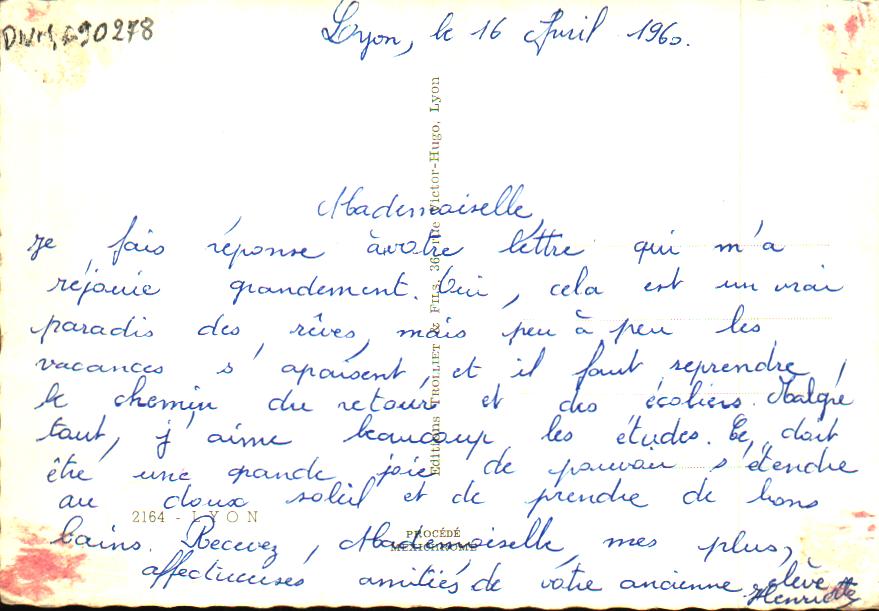 Lyon, le 16 Avril 1960.
Mademoiselle,
Je fais réponse à votre lettre qui m'a
réjouie grandement. Oui, cela est un vrai
paradis des rêves, mais peu à peu les
vacances s'apaisent, et il faut reprendre
le chemin du retour et des écoliers. Malgré
tout, j'aime beaucoup les études. Ce doit
être une grande joie de pouvoir s'étendre
au doux soleil et de prendre de bons
bains. Recevez, Mademoiselle, mes plus,
affectueuses amitiés de votre ancienne élève
Henriette
Editions TROLLIET & FILS, 36, rue Victor-Hugo, Lyon
2164 - LYON
PROCÉDÉ
MEXICHROME